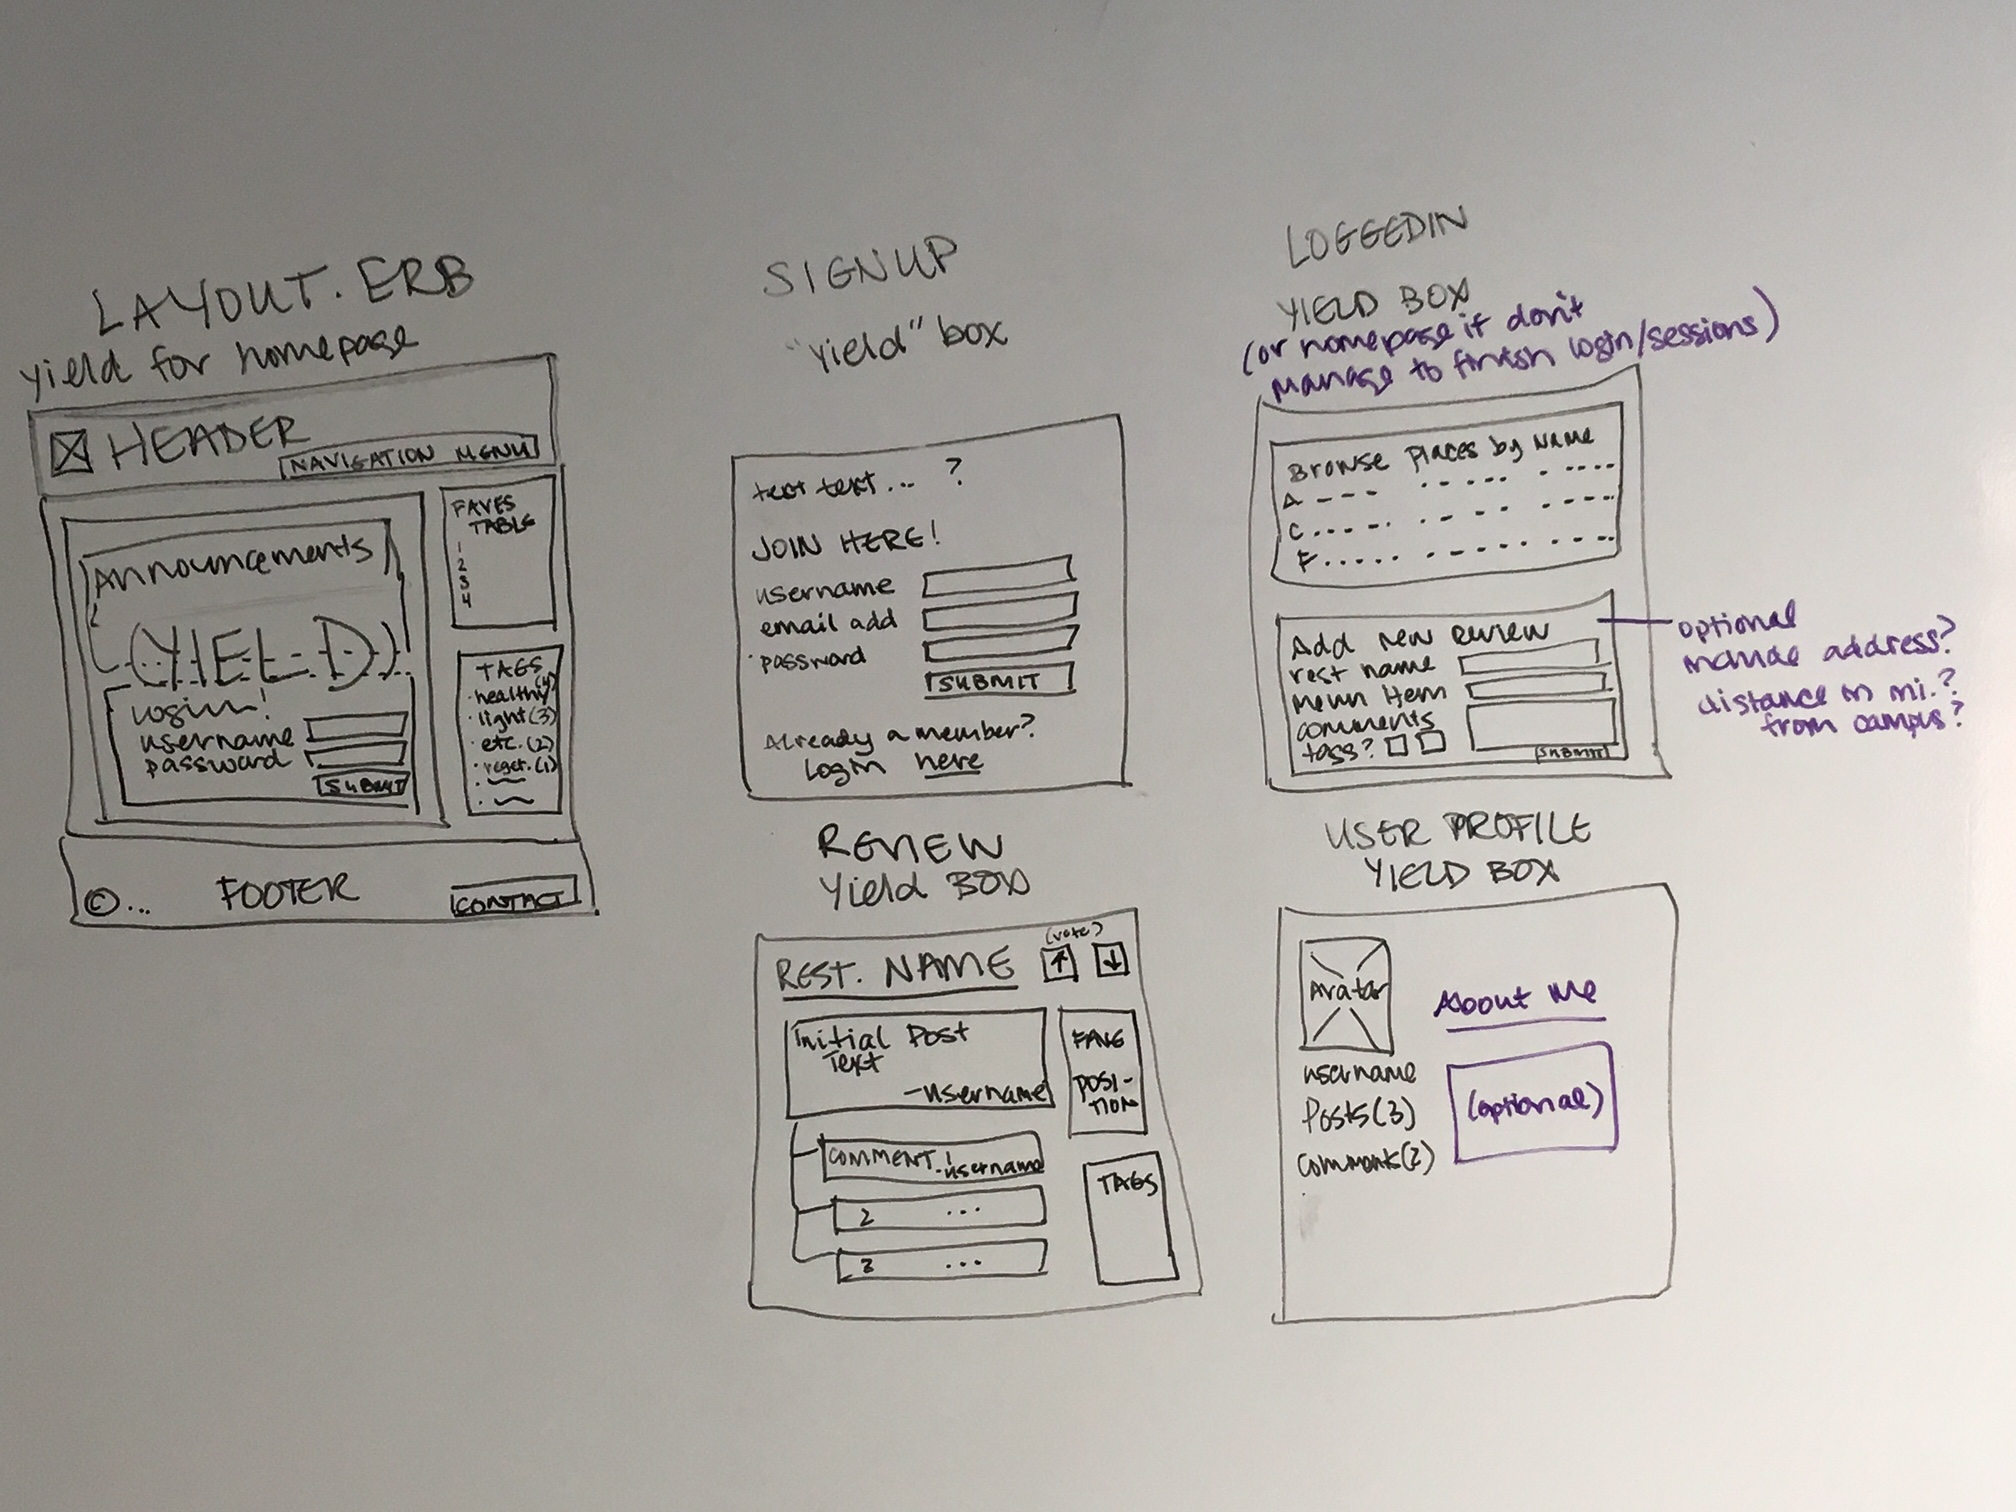 LAYOUT.ERB
yield for homepage
HEADER
NAVIGATION MENU
Announcements
(YIELD)
login!
username
password
SUBMIT
FAVES
TABLE
1
2
3
4
TAGS
· healthy(4)
· light(3)
· etc.(2)
© ...
FOOTER
CONTACT
SIGNUP
"yield" box
text text... ?
JOIN HERE!
username
email add
password
SUBMIT
Already a member?
Login here
LOGGEDIN
YIELD BOX
(or homepage if don't
manage to finish login/sessions)
Browse Places by Name
A - - -
C.....
F.....
Add new review
rest name
menu item
comments
tags?
SUBMIT
optional
include address?
distance in mi.?
from campus?
REVIEW
Yield BOX
REST. NAME
(vote)
↑ ↓
Initial Post
Text
-username
COMMENT 1
-username
2 ...
3 ...
FAVE
POSI-
TION
TAGS
USER PROFILE
YIELD BOX
Avatar
username
Posts(3)
comments(2)
About Me
(optional)